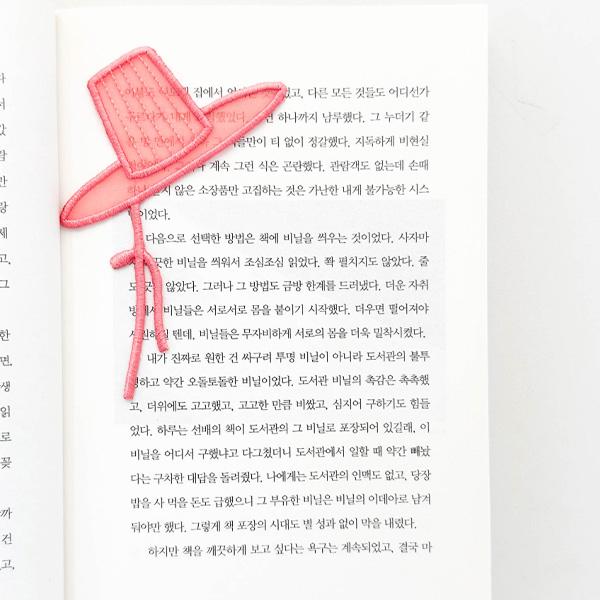 다
서
았
람
만
랑
세
고,
그
한
면,
생
읽
로
꽂
까
건
고,
집에서 었고, 다른 모든 것들도 어디선가
하나까지 남루했다. 그 누더기 같
들만이 티 없이 정갈했다. 지독하게 비현실
계속 그런 식은 곤란했다. 관람객도 없는데 손때
하나 않은 소장품만 고집하는 것은 가난한 내게 불가능한 시스
이었다.
다음으로 선택한 방법은 책에 비닐을 씌우는 것이었다. 사자마
끗한 비닐을 씌워서 조심조심 읽었다. 쫙 펼치지도 않았다. 줄
도 않았다. 그러나 그 방법도 금방 한계를 드러냈다. 더운 자취
방에서 비닐들은 서로서로 몸을 붙이기 시작했다. 더우면 떨어져야
시원하실 텐데, 비닐들은 무자비하게 서로의 몸을 더욱 밀착시켰다.
내가 진짜로 원한 건 싸구려 투명 비닐이 아니라 도서관의 불투
명하고 약간 오돌토돌한 비닐이었다. 도서관 비닐의 촉감은 촉촉했
고, 더위에도 고고했고, 고고한 만큼 비쌌고, 심지어 구하기도 힘들
었다. 하루는 선배의 책이 도서관의 그 비닐로 포장되어 있길래, 이
비닐을 어디서 구했냐고 다그쳤더니 도서관에서 일할 때 약간 빼놨
다는 구차한 대답을 돌려줬다. 나에게는 도서관의 인맥도 없고, 당장
밥을 사 먹을 돈도 급했으니 그 부유한 비닐은 비닐의 이데아로 남겨
둬야만 했다. 그렇게 책 포장의 시대도 별 성과 없이 막을 내렸다.
하지만 책을 깨끗하게 보고 싶다는 욕구는 계속되었고, 결국 마